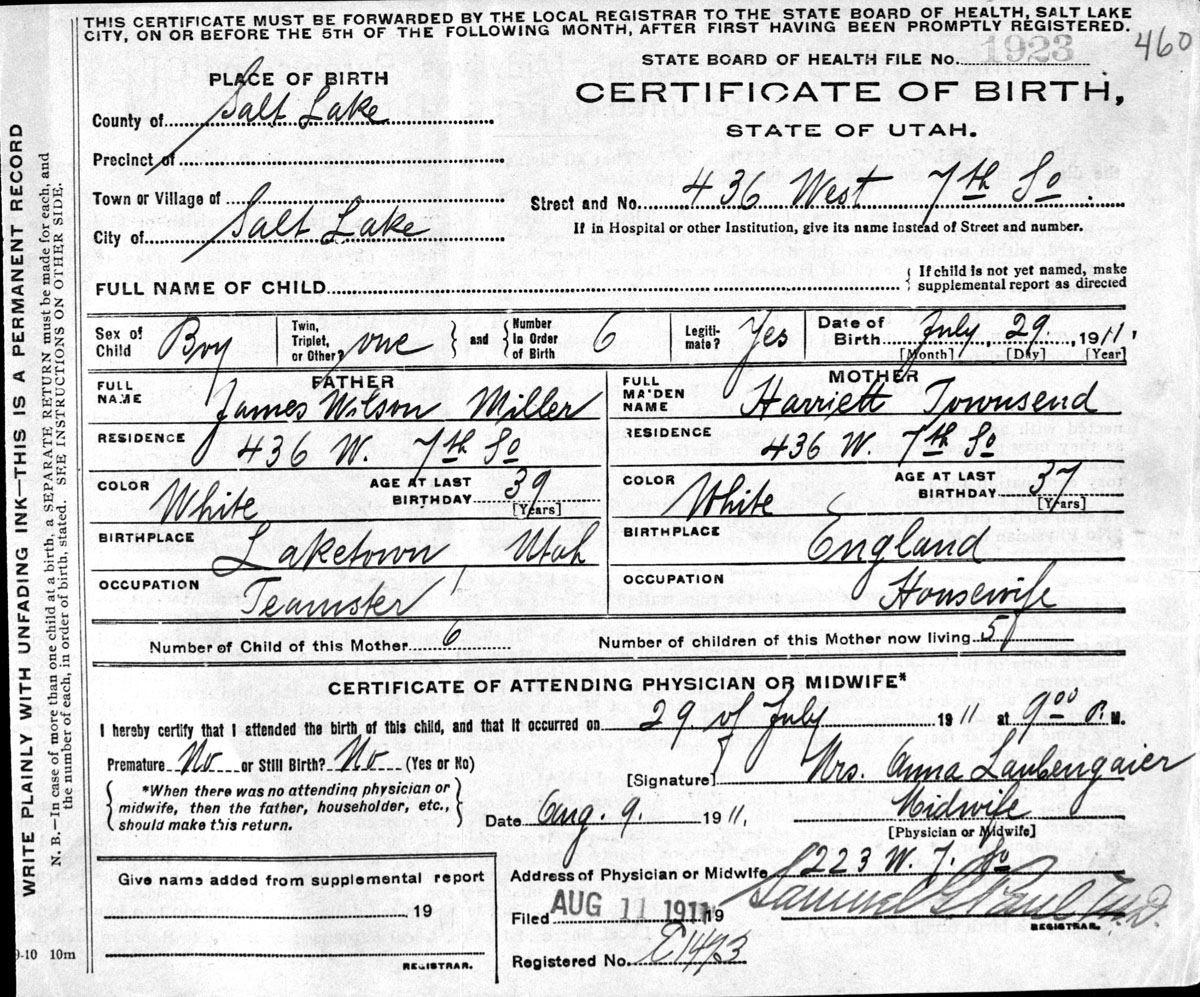 THIS CERTIFICATE MUST BE FORWARDED BY THE LOCAL REGISTRAR TO THE STATE BOARD OF HEALTH, SALT LAKE
CITY, ON OR BEFORE THE 5TH OF THE FOLLOWING MONTH, AFTER FIRST HAVING BEEN PROMPTLY REGISTERED.
460
STATE BOARD OF HEALTH FILE No. 1923
PLACE OF BIRTH
CERTIFICATE OF BIRTH,
STATE OF UTAH.
County of Salt Lake
Precinct of
Town or Village of
Street and No. 436 West 7th So
City of Salt Lake
If in Hospital or other Institution, give its name instead of Street and number.
FULL NAME OF CHILD
If child is not yet named, make
supplemental report as directed
Sex of Child Boy Twin, Triplet, or Other? one and Number In Order of Birth 6 Legitimate? Yes Date of Birth July 29, 1911,
[Month] [Day] [Year]
FATHER MOTHER
FULL NAME James Wilson Miller FULL MAIDEN NAME Harriett Townsend
RESIDENCE 436 W. 7th So RESIDENCE 436 W. 7th So
COLOR White AGE AT LAST BIRTHDAY 39 [Years] COLOR White AGE AT LAST BIRTHDAY 37 [Years]
BIRTHPLACE Laketown Utah BIRTHPLACE England
OCCUPATION Teamster OCCUPATION Housewife
Number of Child of this Mother 6 Number of children of this Mother now living 5
CERTIFICATE OF ATTENDING PHYSICIAN OR MIDWIFE*
I hereby certify that I attended the birth of this child, and that it occurred on 29 of July 1911 at 9:00 P. M.
Premature No or Still Birth? No (Yes or No)
[Signature] Mrs. Anna Laubengaier
*When there was no attending physician or
midwife, then the father, householder, etc.,
should make this return.
Date Aug. 9. 1911, Midwife
[Physician or Midwife]
Address of Physician or Midwife 223 W. 7. So
Give name added from supplemental report
19
REGISTRAR.
Filed AUG 11 1911 19 Samuel G. Paul M.D.
REGISTRAR.
Registered No. E1473
9-10 10m
WRITE PLAINLY WITH UNFADING INK—THIS IS A PERMANENT RECORD
N. B.—In case of more than one child at a birth, a SEPARATE RETURN must be made for each, and
the number of each, in order of birth, stated. SEE INSTRUCTIONS ON OTHER SIDE.